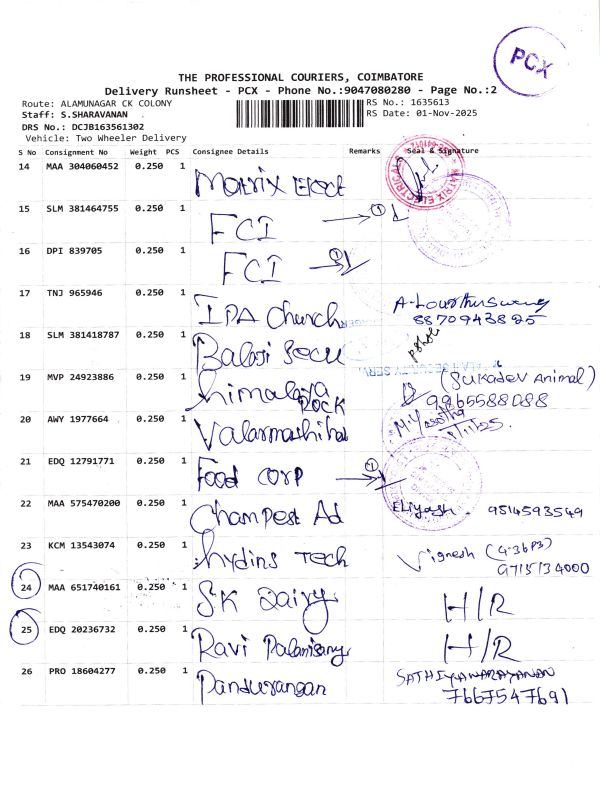 PCX
THE PROFESSIONAL COURIERS, COIMBATORE
Delivery Runsheet - PCX - Phone No.:9047080280 - Page No.:2
Route: ALAMUNAGAR CK COLONY RS No.: 1635613
Staff: S.SHARAVANAN RS Date: 01-Nov-2025
DRS No.: DCJB163561302
Vehicle: Two Wheeler Delivery
S No Consignment No Weight PCS Consignee Details Remarks Seal & Signature
14 MAA 304060452 0.250 1 Matrix Elect
15 SLM 381464755 0.250 1 FCI 1
16 DPI 839705 0.250 1 FCI 1
17 TNJ 965946 0.250 1 IPA Church
8870943825
18 SLM 381418787 0.250 1 Balaji Secu
19 MVP 24923886 0.250 1 himalaya ROCK (Sukadev Animal)
9965588088
20 AWY 1977664 0.250 1 Valarmathi
1/11/25
21 EDQ 12791771 0.250 1 Food corp 1
22 MAA 575470200 0.250 1 Champest Ad Eliyash. 9514593549
23 KCM 13543074 0.250 1 hydins Tech Vignesh (4:36 P3)
9715134000
24 MAA 651740161 0.250 1 S.K Dairy H/R
25 EDQ 20236732 0.250 1 Ravi Palanisamy H/R
26 PRO 18604277 0.250 1 Pandurangan SATHIYANARAYANAN
7667547691